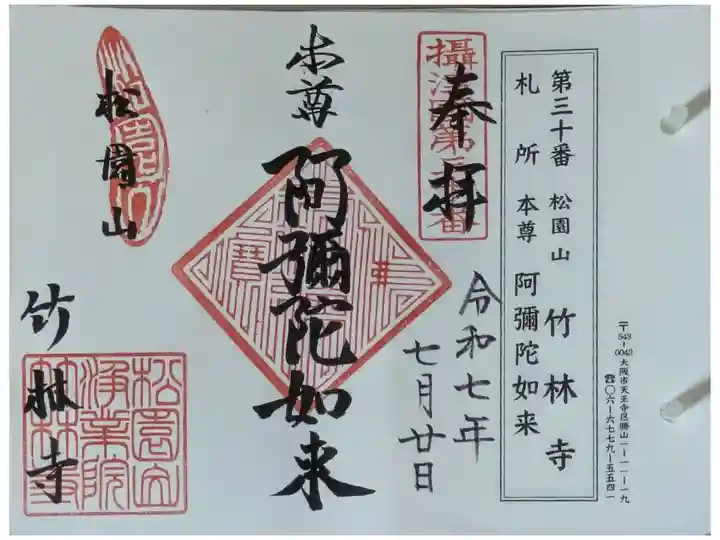 第三十番 松園山 竹林寺
札所 本尊 阿彌陀如来
〒543-0043 大阪市天王寺区勝山一-一一-一九
☎〇六-六七七九-五五四一
攝津國第三十番
奉拝
令和七年
七月廿日
本尊
阿彌陀如来
松園山
竹林寺
松園山
浄業院
竹林寺